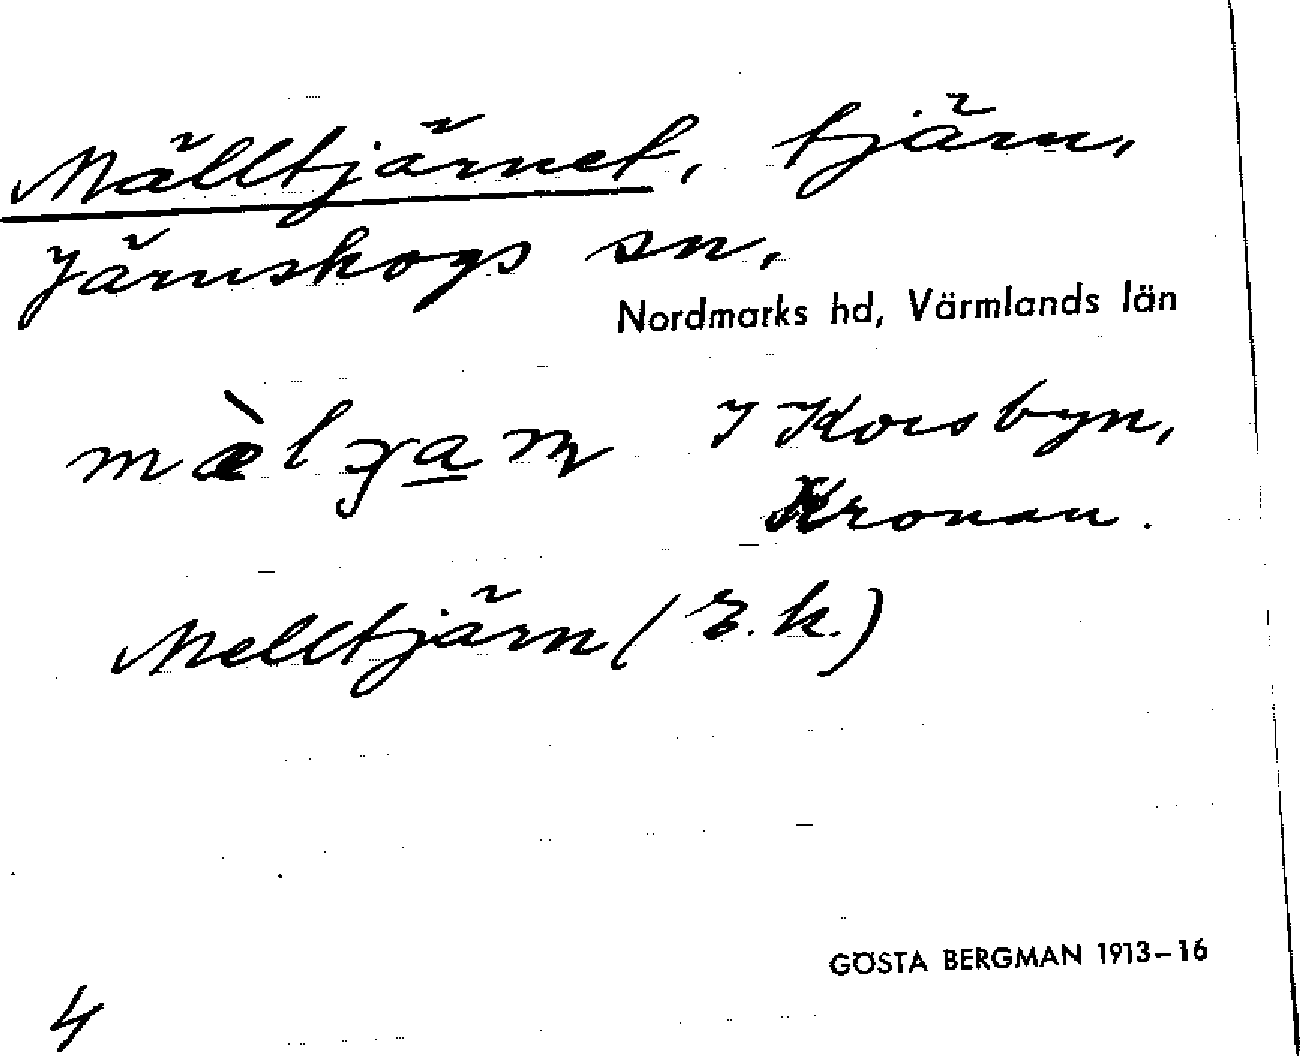 Mälltjärnet, tjärn,
Järnskogs sn,
Nordmarks hd, Värmlands län
I Korsbyn,
Kronan.
Melltjärn (E.k.)
GÖSTA BERGMAN 1913–16
4